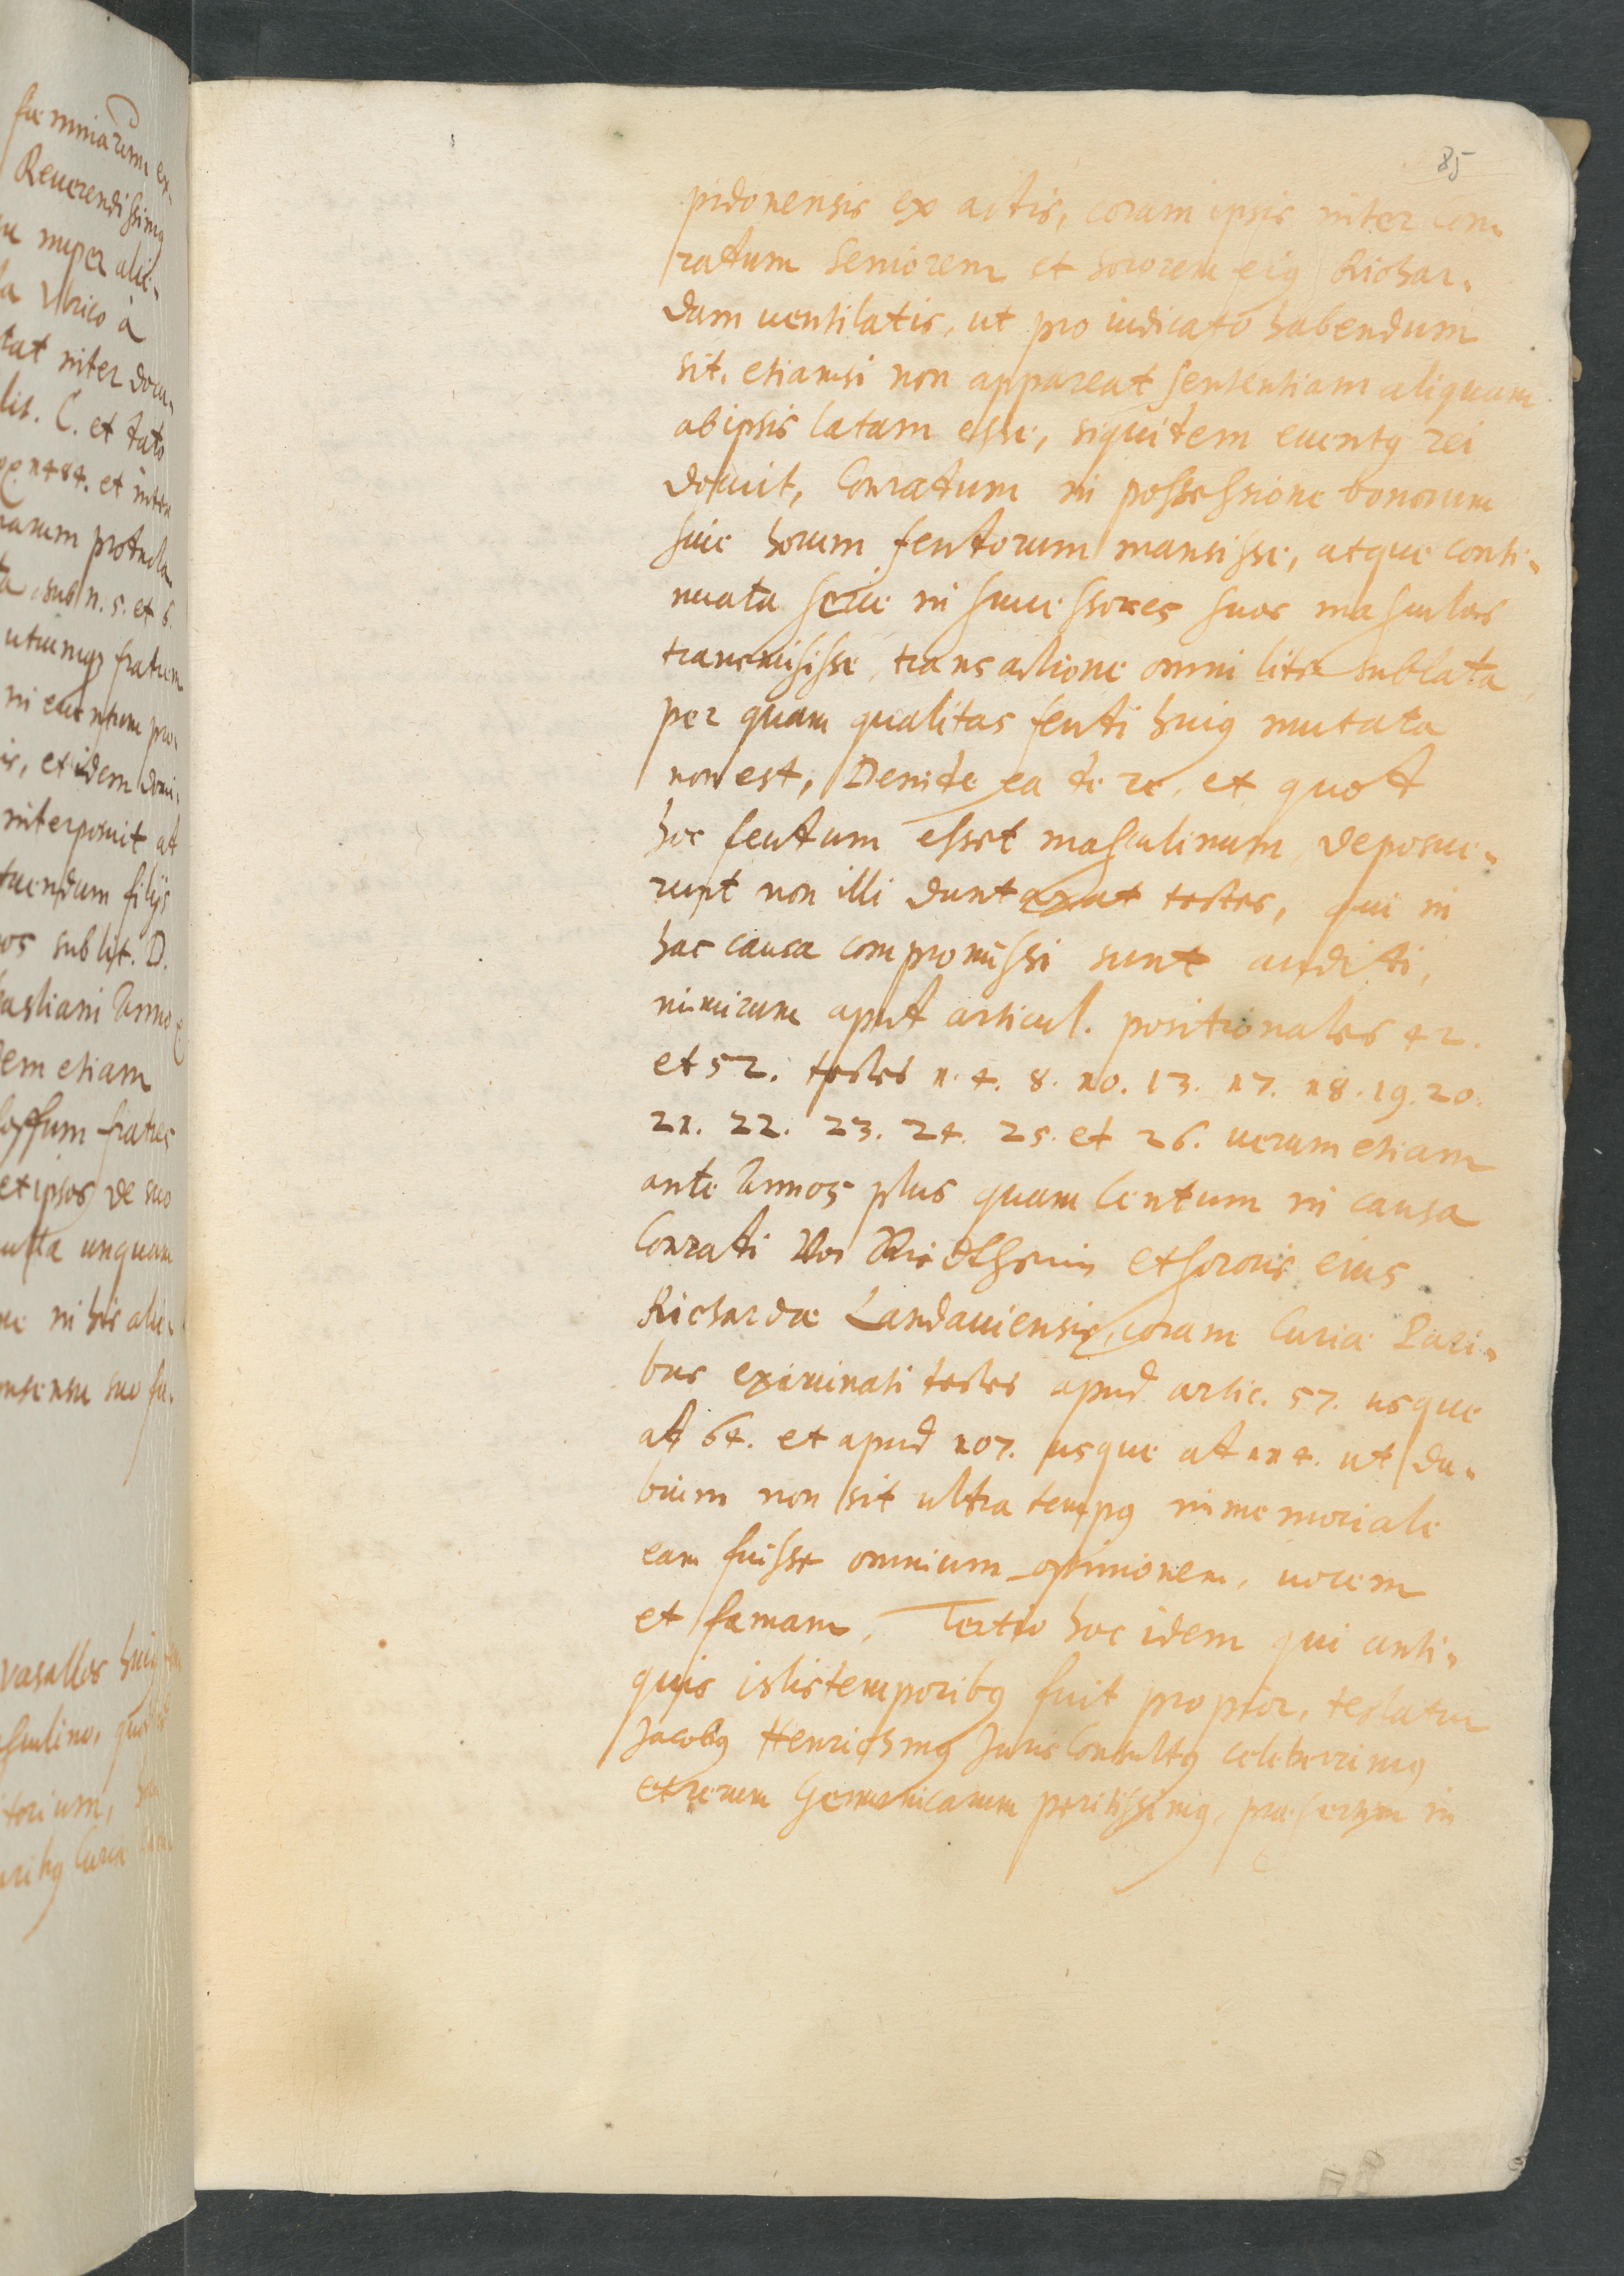 85
pidonensis ex actis, coram ipsis inter Con-
ratum Seniorem et sororem eiq Richar-
dam uentilatis, ut pro iudicato habendum
sit, etiamsi non appareat sententiam aliquam
ab ipsis latam esse, siquidem euentq rei
docuit, Conradum in possessione bonorum
siue horum feudorum mansisse, atque conti-
nuata serie in successores suos masculos
transmisisse, transactione omni lite sublata,
per quam qualitas feudi huiq mutata
non est, Deinde ea de re, et quod
hoc feudum esset masculinum, deposue-
runt non illi duntaxat testes, qui in
hac causa compromissi sunt auditi,
nimirum apud articul. positionales 42.
et 52. testes 1. 4. 8. 10. 13. 17. 18. 19. 20.
21. 22. 23. 24. 25. et 26. uerum etiam
ante Annos plus quam Centum in causa
Conradi Von Riedtheim et sororis eius
Richardæ Landauiensis, coram Curiæ Pari-
bus examinati testes apud artic. 57. usque
ad 64. et apud 107. usque ad 114. ut du-
bium non sit ultra tempq immemoriale
eam fuisse omnium opinionem, uocem
et famam. Tertio hoc idem qui anti-
quis istis temporibq fuit propior, testatur
Jacobq Henrichmq Juris Consultq celeberrimq
et rerum Germanicarum peritissimq, præsertim in
fæminarum ex-
Reuerendissimq
nuper ali-
Vlrico à
inter docu-
lit. C. et dato
1484. et inter
sub n. 5. et 6.
utrumqz fratrem
in euentum pro-
et idem domi-
interposuit ad
filijs
sub lit. D.
Anno
etiam
fratres
et ipsos de suo
unquam
in his ali-
suo
vasallos huiq
Curiæ